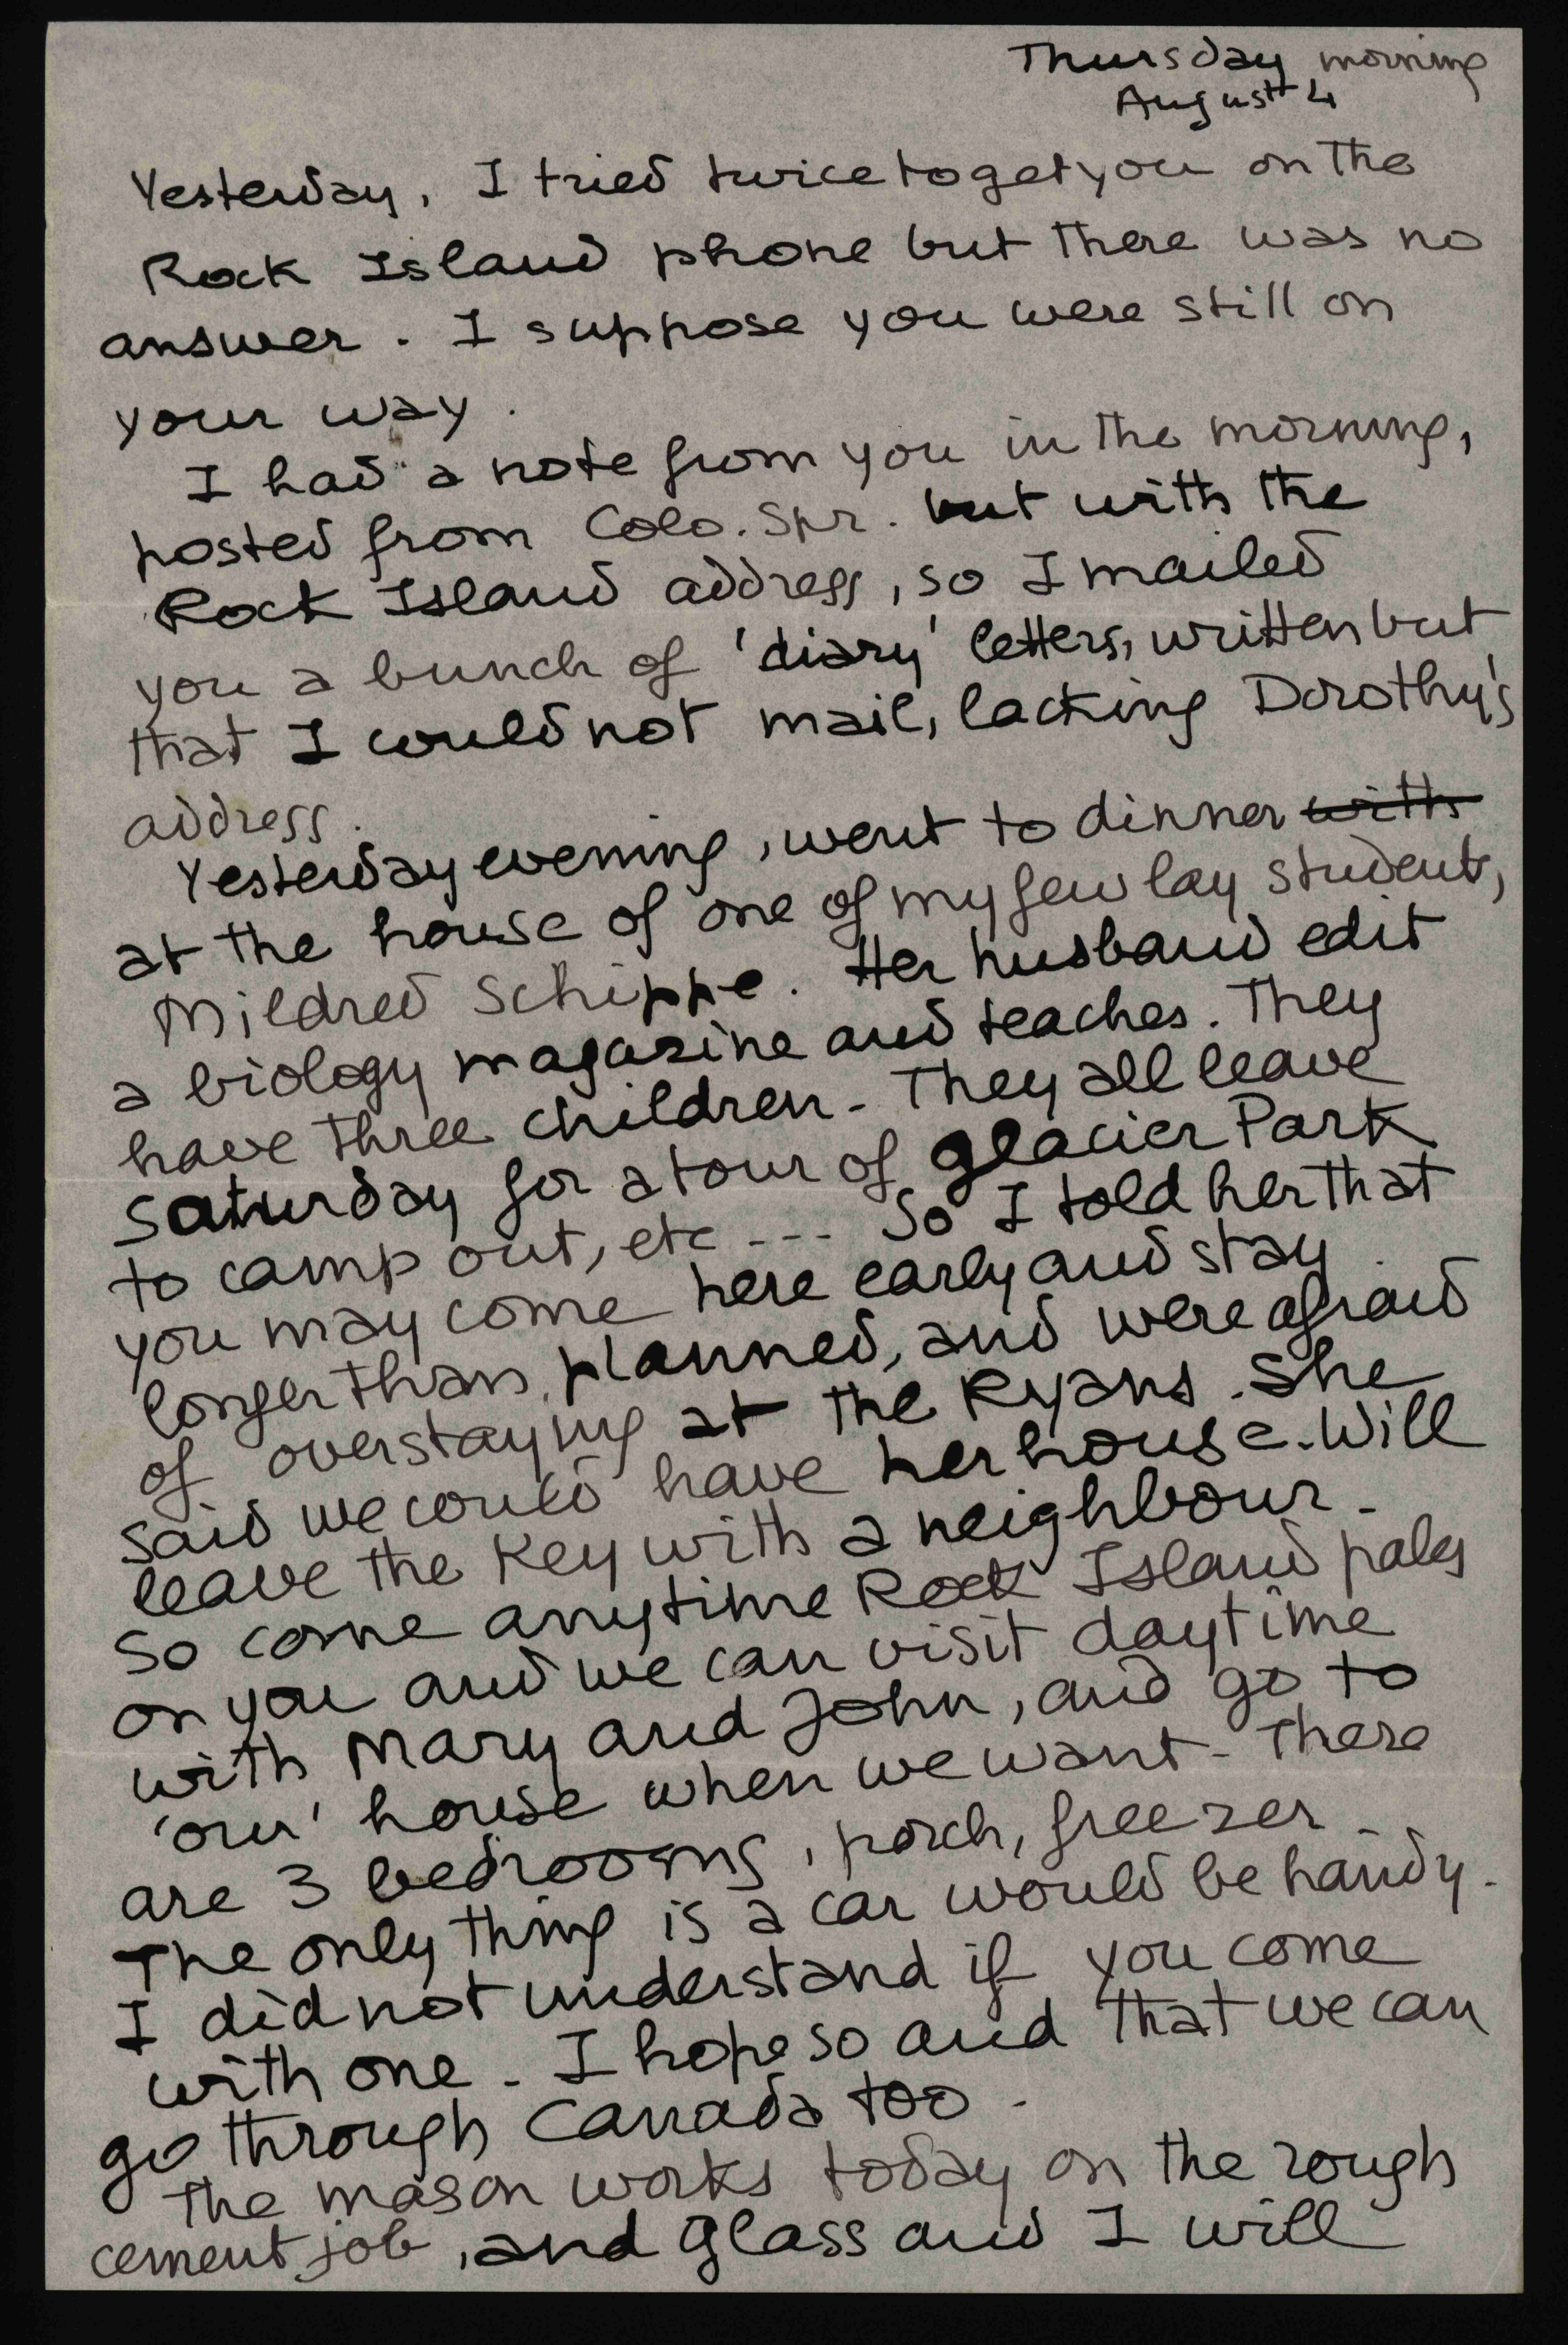 Thursday morning
August 4
Yesterday, I tried twice to get you on the
Rock Island phone but there was no
answer. I suppose you were still on
your way.
I had a note from you in the morning,
posted from Colo. Spr. but with the
Rock Island address, so I mailed
you a bunch of 'diary' letters, written but
that I could not mail, lacking Dorothy's
address.
Yesterday evening, went to dinner with
at the house of one of my few lay students,
Mildred Schippe. Her husband edit
a biology magazine and teaches. They
have three children - They all leave
Saturday for a tour of glacier Park
to camp out, etc --- So I told her that
you may come here early and stay
longer than planned, and were afraid
of overstaying at the Ryans. She
said we could have her house. Will
leave the key with a neighbour -
So come anytime Rock Island pales
on you and we can visit daytime
with Mary and John, and go to
'our' house when we want - There
are 3 bedrooms, porch, freezer -
The only thing is a car would be handy -
I did not understand if you come
with one - I hope so and that we can
go through Canada too -
The mason works today on the rough
cement job, and glass and I will